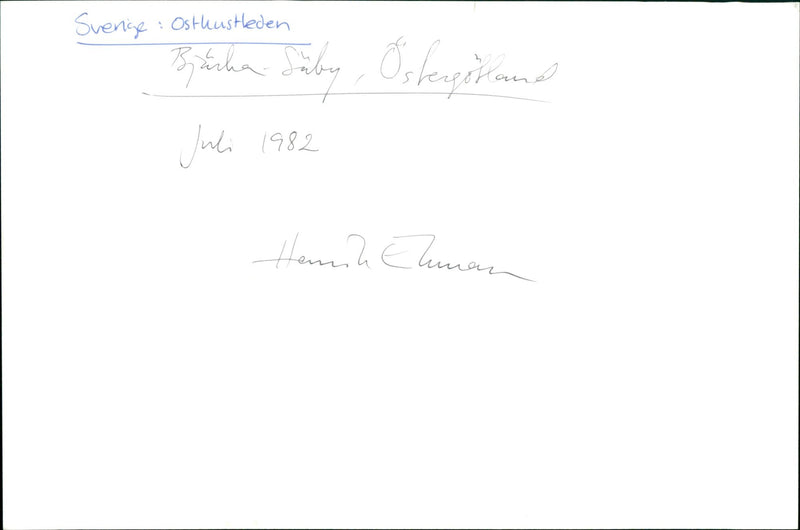 Sverige : Ostkustleden
Bjärka-Säby, Östergötland
Juli 1982
Henrik Ekman